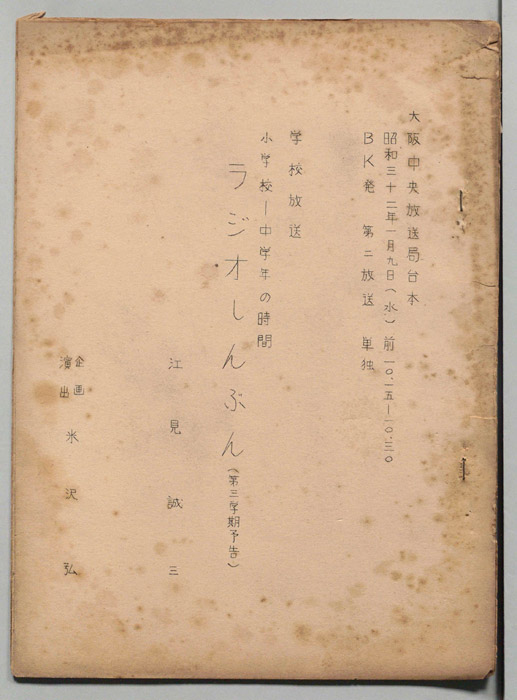 大阪中央放送局台本
昭和三十二年一月九日(水) 前一〇、一五―一〇、三〇
BK発 第二放送 単独
学校放送
小学校―中学年の時間
ラジオしんぶん(第三学期予告)
江見誠三
企画
演出 米沢弘